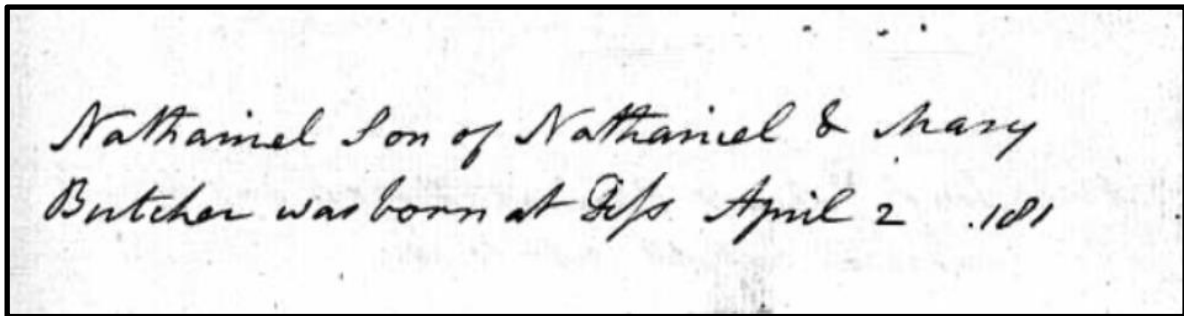 Nathaniel Son of Nathaniel & Mary
Butcher was born at Diss April 2 .181